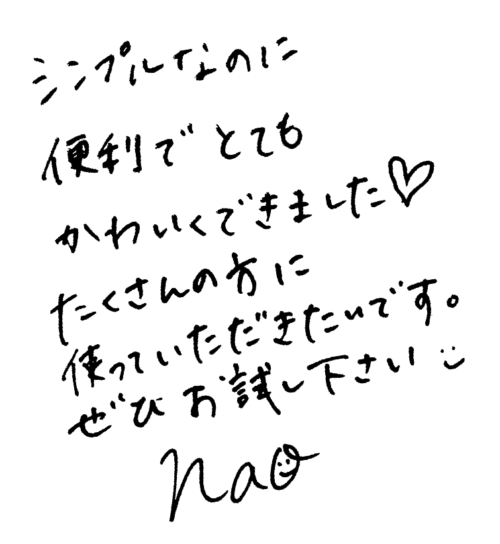 シンプルなのに
便利でとても
かわいくできました♡
たくさんの方に
使っていただきたいです。
ぜひお試し下さい
nao